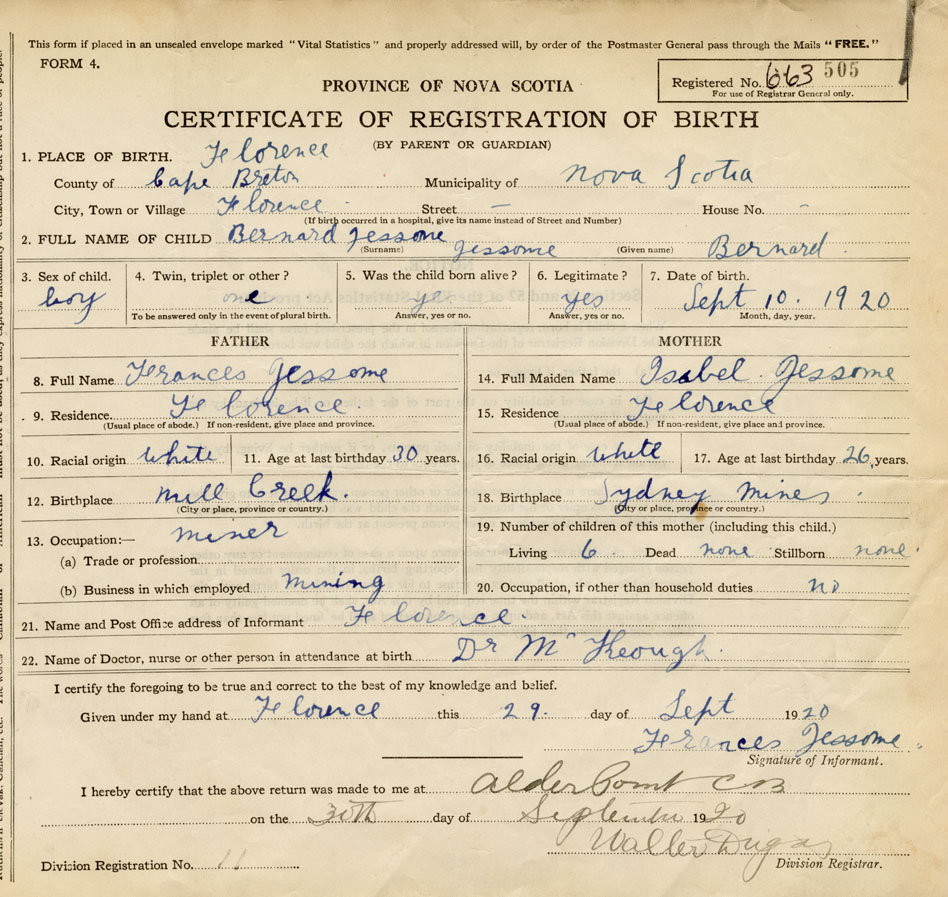 This form if placed in an unsealed envelope marked "Vital Statistics" and properly addressed will, by order of the Postmaster General pass through the Mails "FREE."
FORM 4.
Registered No. 663 505
For use of Registrar General only.
PROVINCE OF NOVA SCOTIA
CERTIFICATE OF REGISTRATION OF BIRTH
(BY PARENT OR GUARDIAN)
1. PLACE OF BIRTH. Florence
County of Cape Breton Municipality of Nova Scotia
City, Town or Village Florence Street — House No. -
(If birth occurred in a hospital, give its name instead of Street and Number)
2. FULL NAME OF CHILD Bernard Jessome Jessome Bernard
(Surname) (Given name)
3. Sex of child. 4. Twin, triplet or other? 5. Was the child born alive? 6. Legitimate? 7. Date of birth.
boy one yes yes Sept 10. 1920
To be answered only in the event of plural birth. Answer, yes or no. Answer, yes or no. Month, day, year.
FATHER
8. Full Name Frances Jessome
9. Residence. Florence
(Usual place of abode.) If non-resident, give place and province.
10. Racial origin white 11. Age at last birthday 30 years.
12. Birthplace Mill Creek.
(City or place, province or country.)
13. Occupation:— miner
(a) Trade or profession
(b) Business in which employed mining
MOTHER
14. Full Maiden Name Isabel Jessome
15. Residence Florence
(Usual place of abode.) If non-resident, give place and province.
16. Racial origin white 17. Age at last birthday 26 years.
18. Birthplace Sydney Mines
(City or place, province or country.)
19. Number of children of this mother (including this child.)
Living 6 Dead none Stillborn none
20. Occupation, if other than household duties no
21. Name and Post Office address of Informant Florence
22. Name of Doctor, nurse or other person in attendance at birth Dr McKeough
I certify the foregoing to be true and correct to the best of my knowledge and belief.
Given under my hand at Florence this 29. day of Sept 1920
Frances Jessome
Signature of Informant.
I hereby certify that the above return was made to me at Alder Point CB
on the 30th day of September 1920
Walter
Division Registration No. 11 Division Registrar.